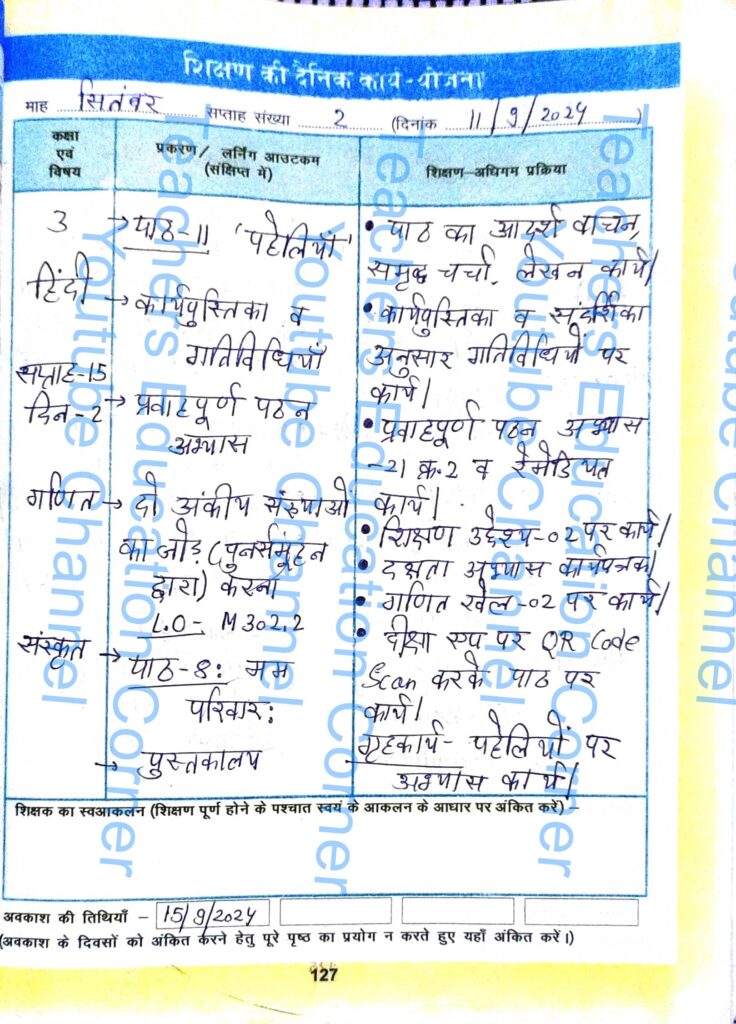 शिक्षण की दैनिक कार्य-योजना
माह सितंबर सप्ताह संख्या 2 (दिनांक 11/9/2024)
कक्षा
एवं
विषय
प्रकरण/ लर्निंग आउटकम
(संक्षिप्त में)
शिक्षण-अधिगम प्रक्रिया
3
हिंदी
सप्ताह-15
दिन-2
गणित
संस्कृत
→ पाठ-11 'पहेलियाँ'
→ कार्यपुस्तिका व
गतिविधियाँ
→ प्रवाहपूर्ण पठन
अभ्यास
→ दो अंकीय संख्याओं
का जोड़ (पुनर्समूहन
द्वारा) करना
L.O- M302.2
→ पाठ-8: मम
परिवार:
→ पुस्तकालय
• पाठ का आदर्श वाचन,
समृद्ध चर्चा, लेखन कार्य।
• कार्यपुस्तिका व संदर्शिका
अनुसार गतिविधियों पर
कार्य।
• प्रवाहपूर्ण पठन अभ्यास
-21 क्र.2 व रेमेडियल
कार्य।
• शिक्षण उद्देश्य-02 पर कार्य।
• दक्षता अभ्यास कार्यपत्रक।
• गणित खेल-02 पर कार्य।
• दीक्षा एप पर QR Code
Scan करके पाठ पर
कार्य।
गृहकार्य- पहेलियों पर
अभ्यास कार्य।
शिक्षक का स्वआकलन (शिक्षण पूर्ण होने के पश्चात स्वयं के आकलन के आधार पर अंकित करें) –
अवकाश की तिथियाँ – 15/9/2024
(अवकाश के दिवसों को अंकित करने हेतु पूरे पृष्ठ का प्रयोग न करते हुए यहाँ अंकित करें।)
127
Teachers Education Corner
Youtube Channel
Teachers Education Corner
Youtube Channel
Teachers Education Corner
Youtube Channel